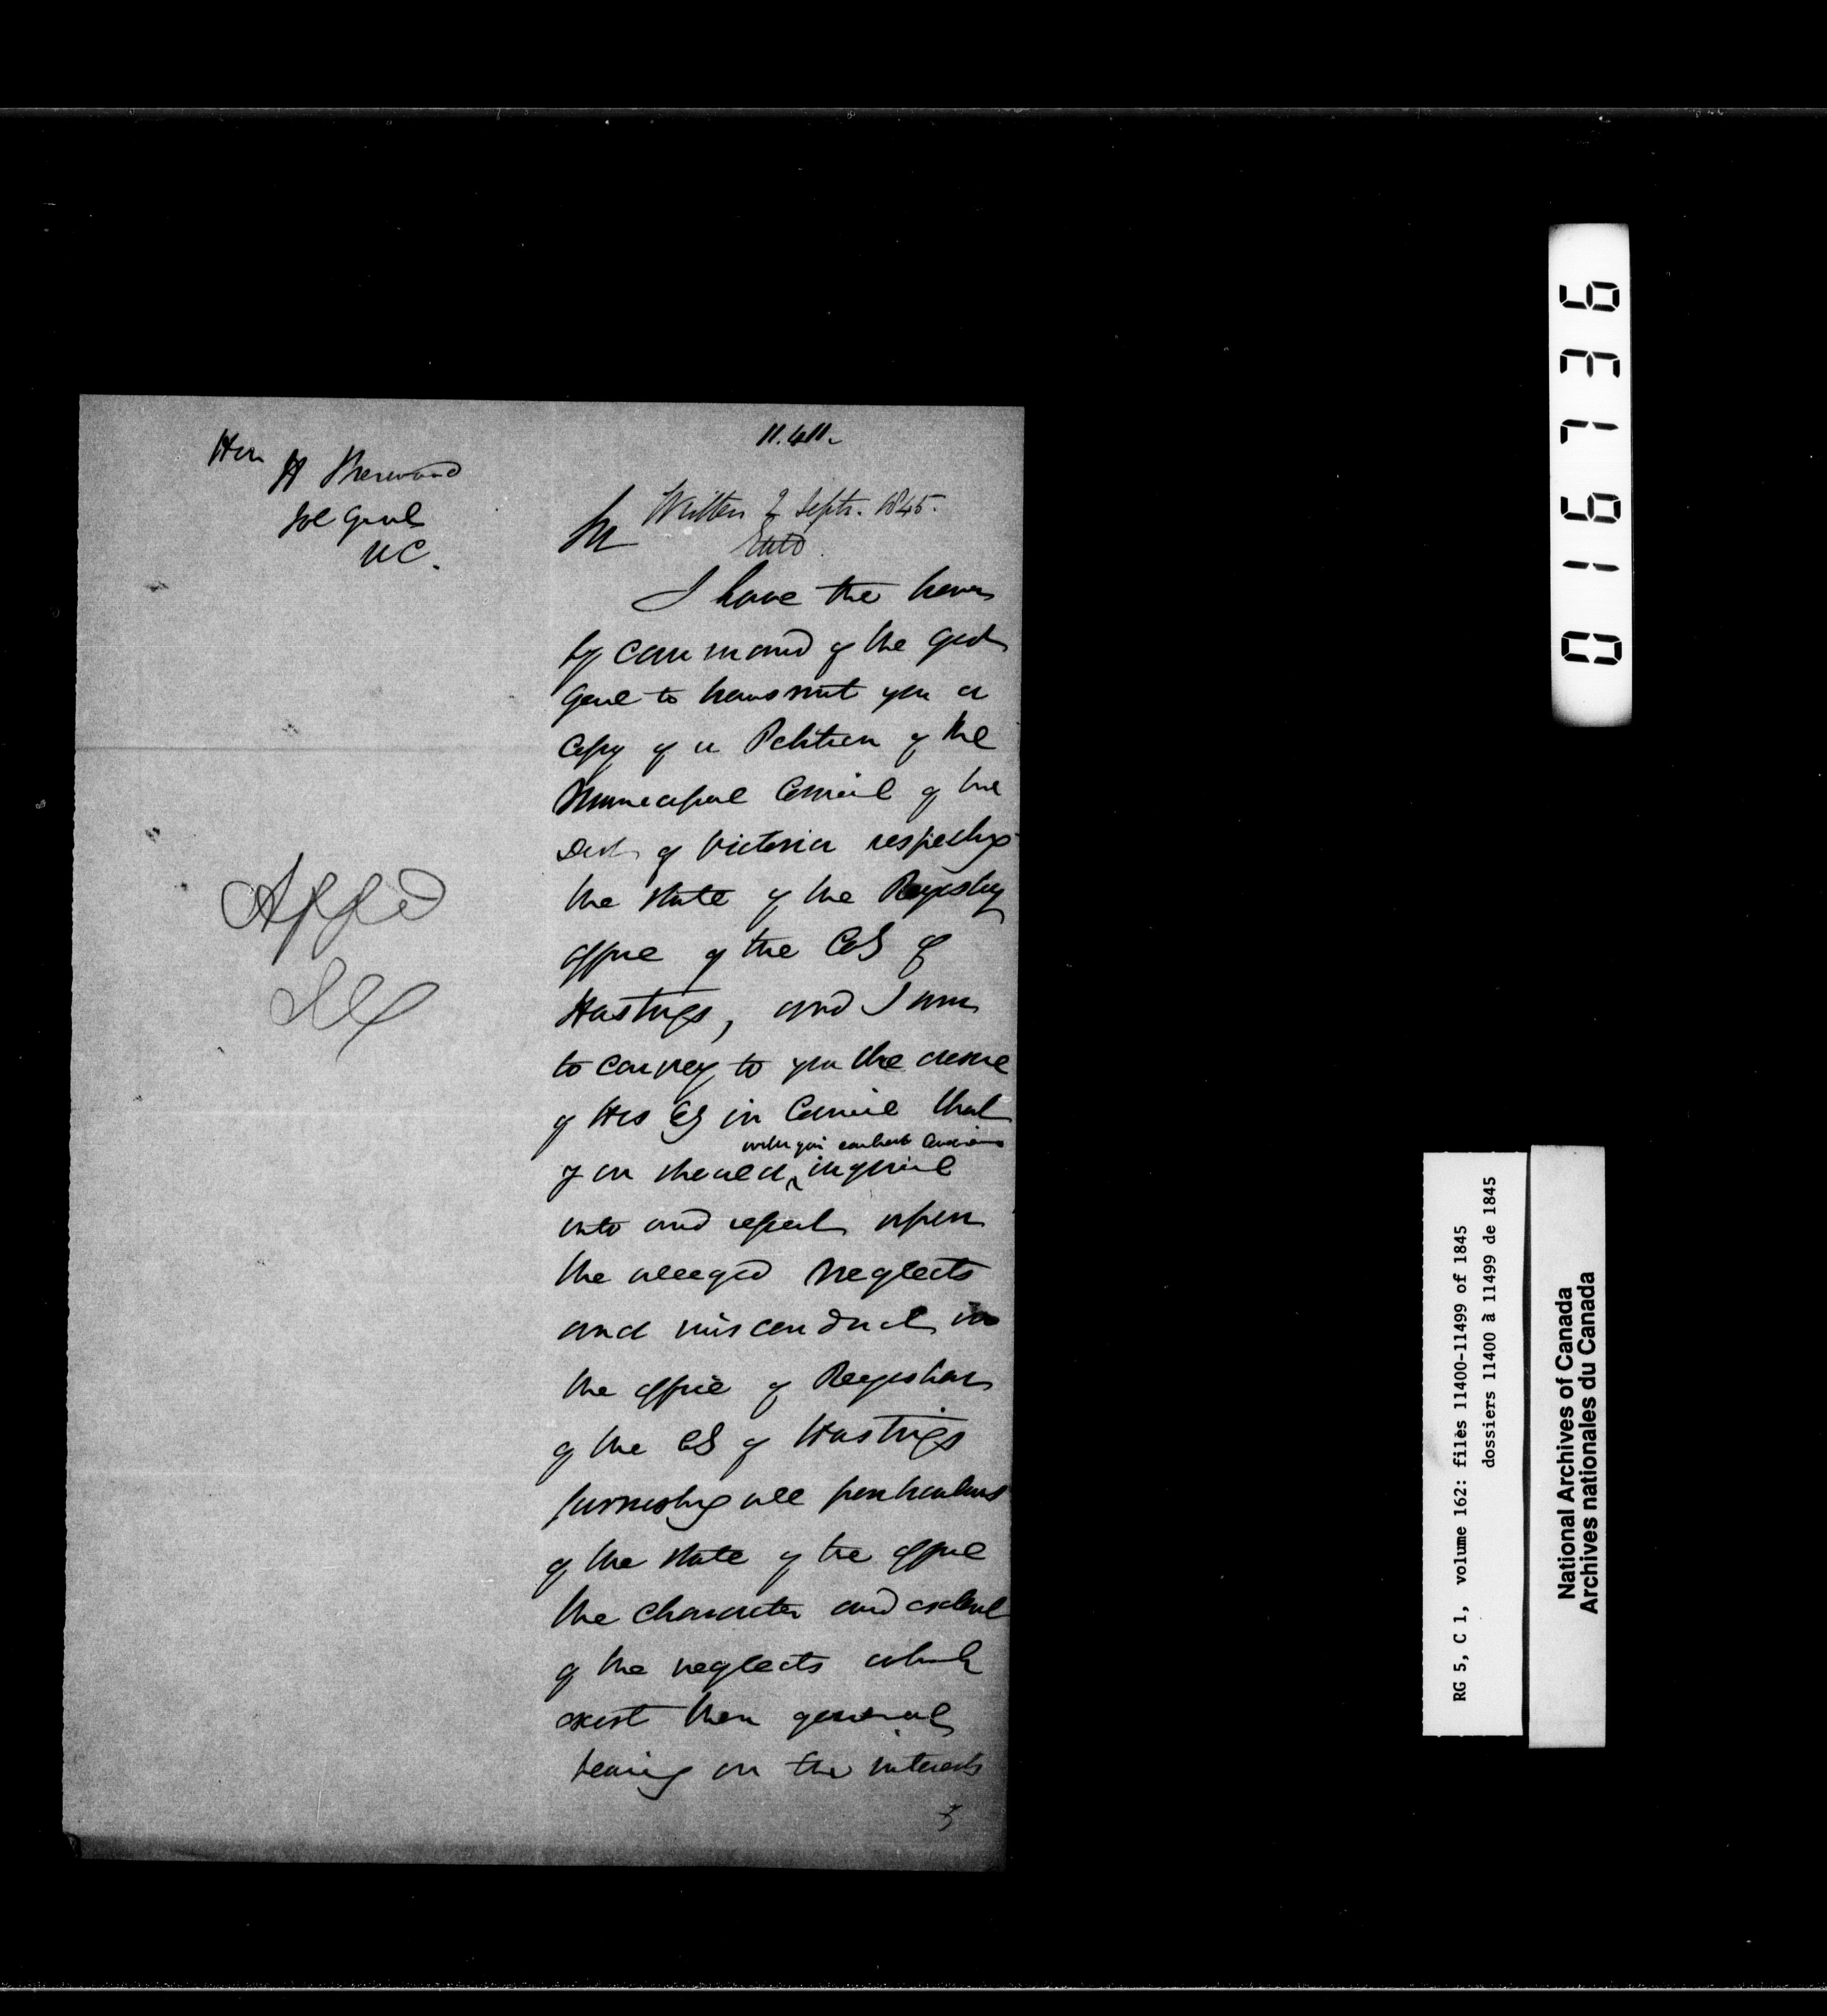 11.411.
Hon
H Sherwood
Sol Genl
UC.
Written 2 Septr. 1845.
Sir
I have the honor
by command of the Govr
Genl to transmit you a
Copy of a Petition of the
Municipal Council of the
Dist of Victoria respecting
the state of the Registry
office of the Co^y of
Hastings, and I am
to convey to you the desire
of His Ey in Council that
with your earliest
you should ^ inquire
into and report upon
the alleged neglects
and misconduct in
the office of Registrar
of the Cy of Hastings
furnishing all particulars
of the state of the office
the character and extent
of the neglects which
exist their general
bearing on the interests
Appd
016736
RG 5, C 1, volume 162: files 11400-11499 of 1845
dossiers 11400 à 11499 de 1845
National Archives of Canada
Archives nationales du Canada